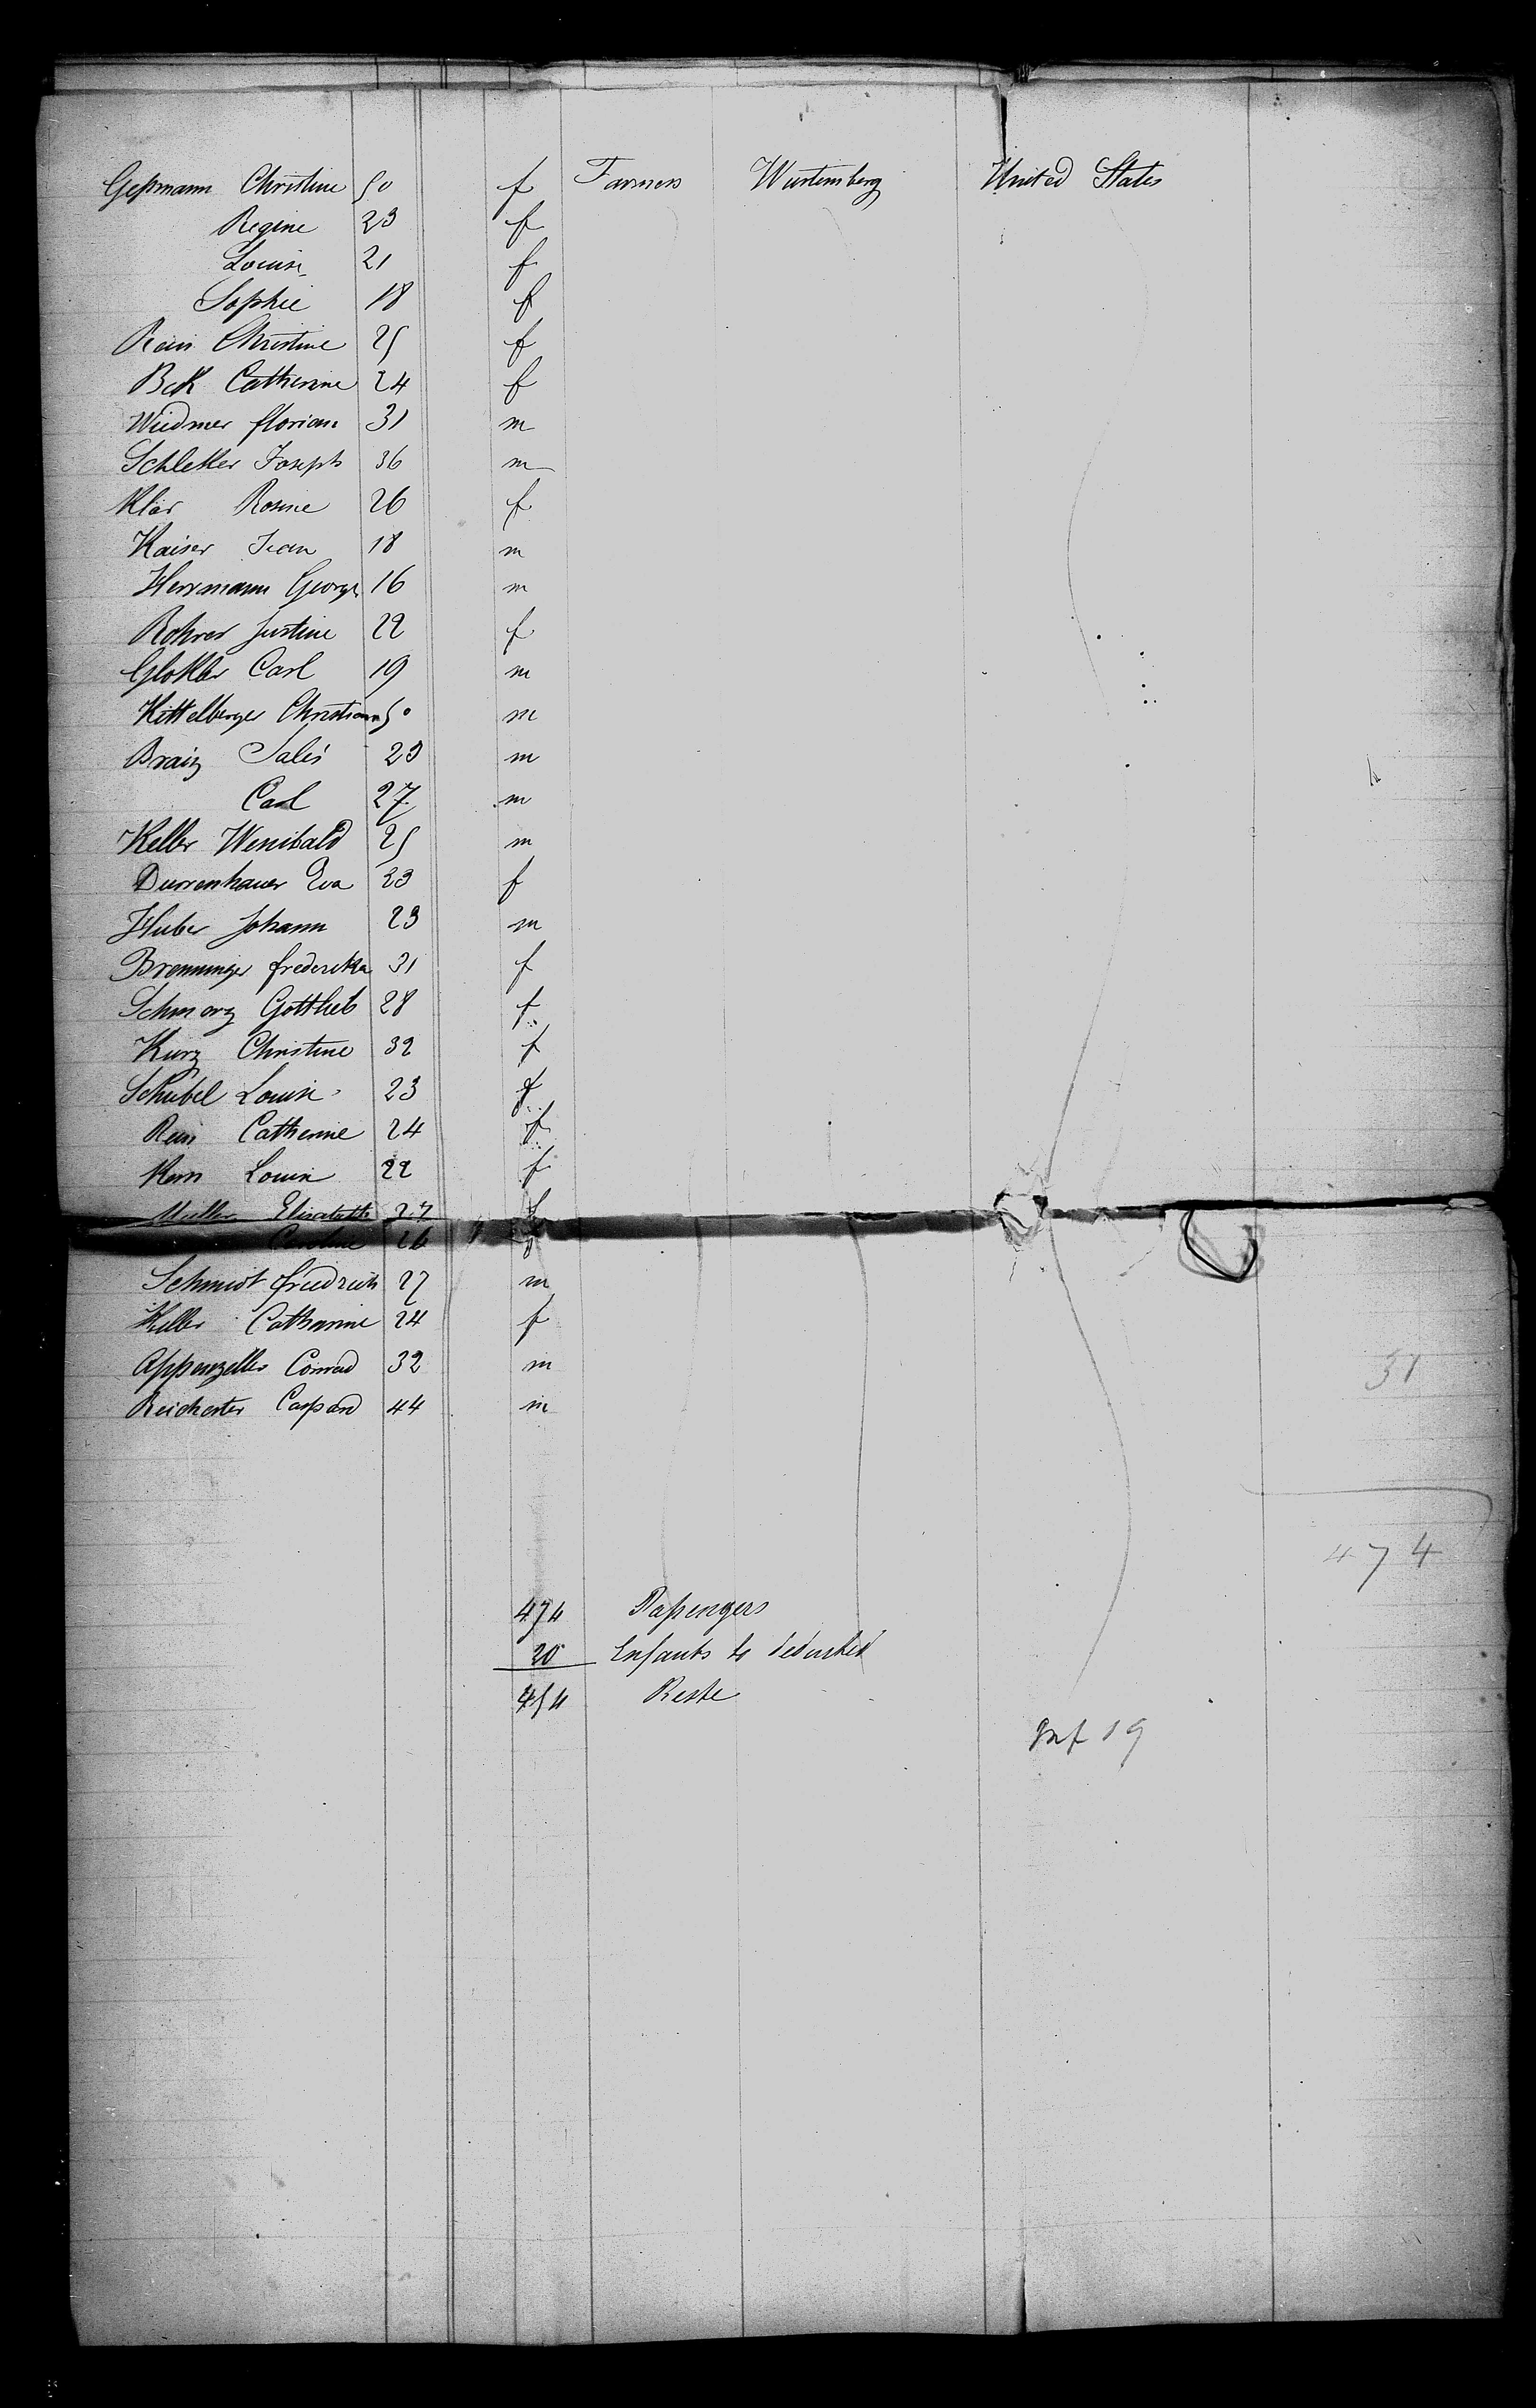 Geßmann Christine 50 f Farmers Wurtemberg United States
Regine 23 f
Louise 21 f
Sophie 18 f
Rein Christine 25 f
Bek Catherine 24 f
Wiedmer florian 31 m
Schletter Joseph 36 m
Klär Rosine 26 f
Kaiser Jean 18 m
Herrmann George 16 m
Rohrer Justine 22 f
Glokler Carl 19 m
Kittelberger Christian 50 m
Braig Salés 23 m
Carl 27 m
Keller Wenibald 25 m
Durrenhauer Eva 23 f
Huber Johann 23 m
Brenninger frederika 31 f
Gottlieb 28 f
Kurz Christine 32 f
Schubel Louise 23 f
Rein Catherine 24 f
Kern Louise 22 f
Muller Elisabeth 27 f
Caroline 26 f
Schmidt friedrich 27 m
Keller Catharine 24 f
Appenzeller Conrad 32 m 31
Reichester Caspard 44 m
474
474 Paßengers
20 Enfants to deducted
454 Reste
Inf 19